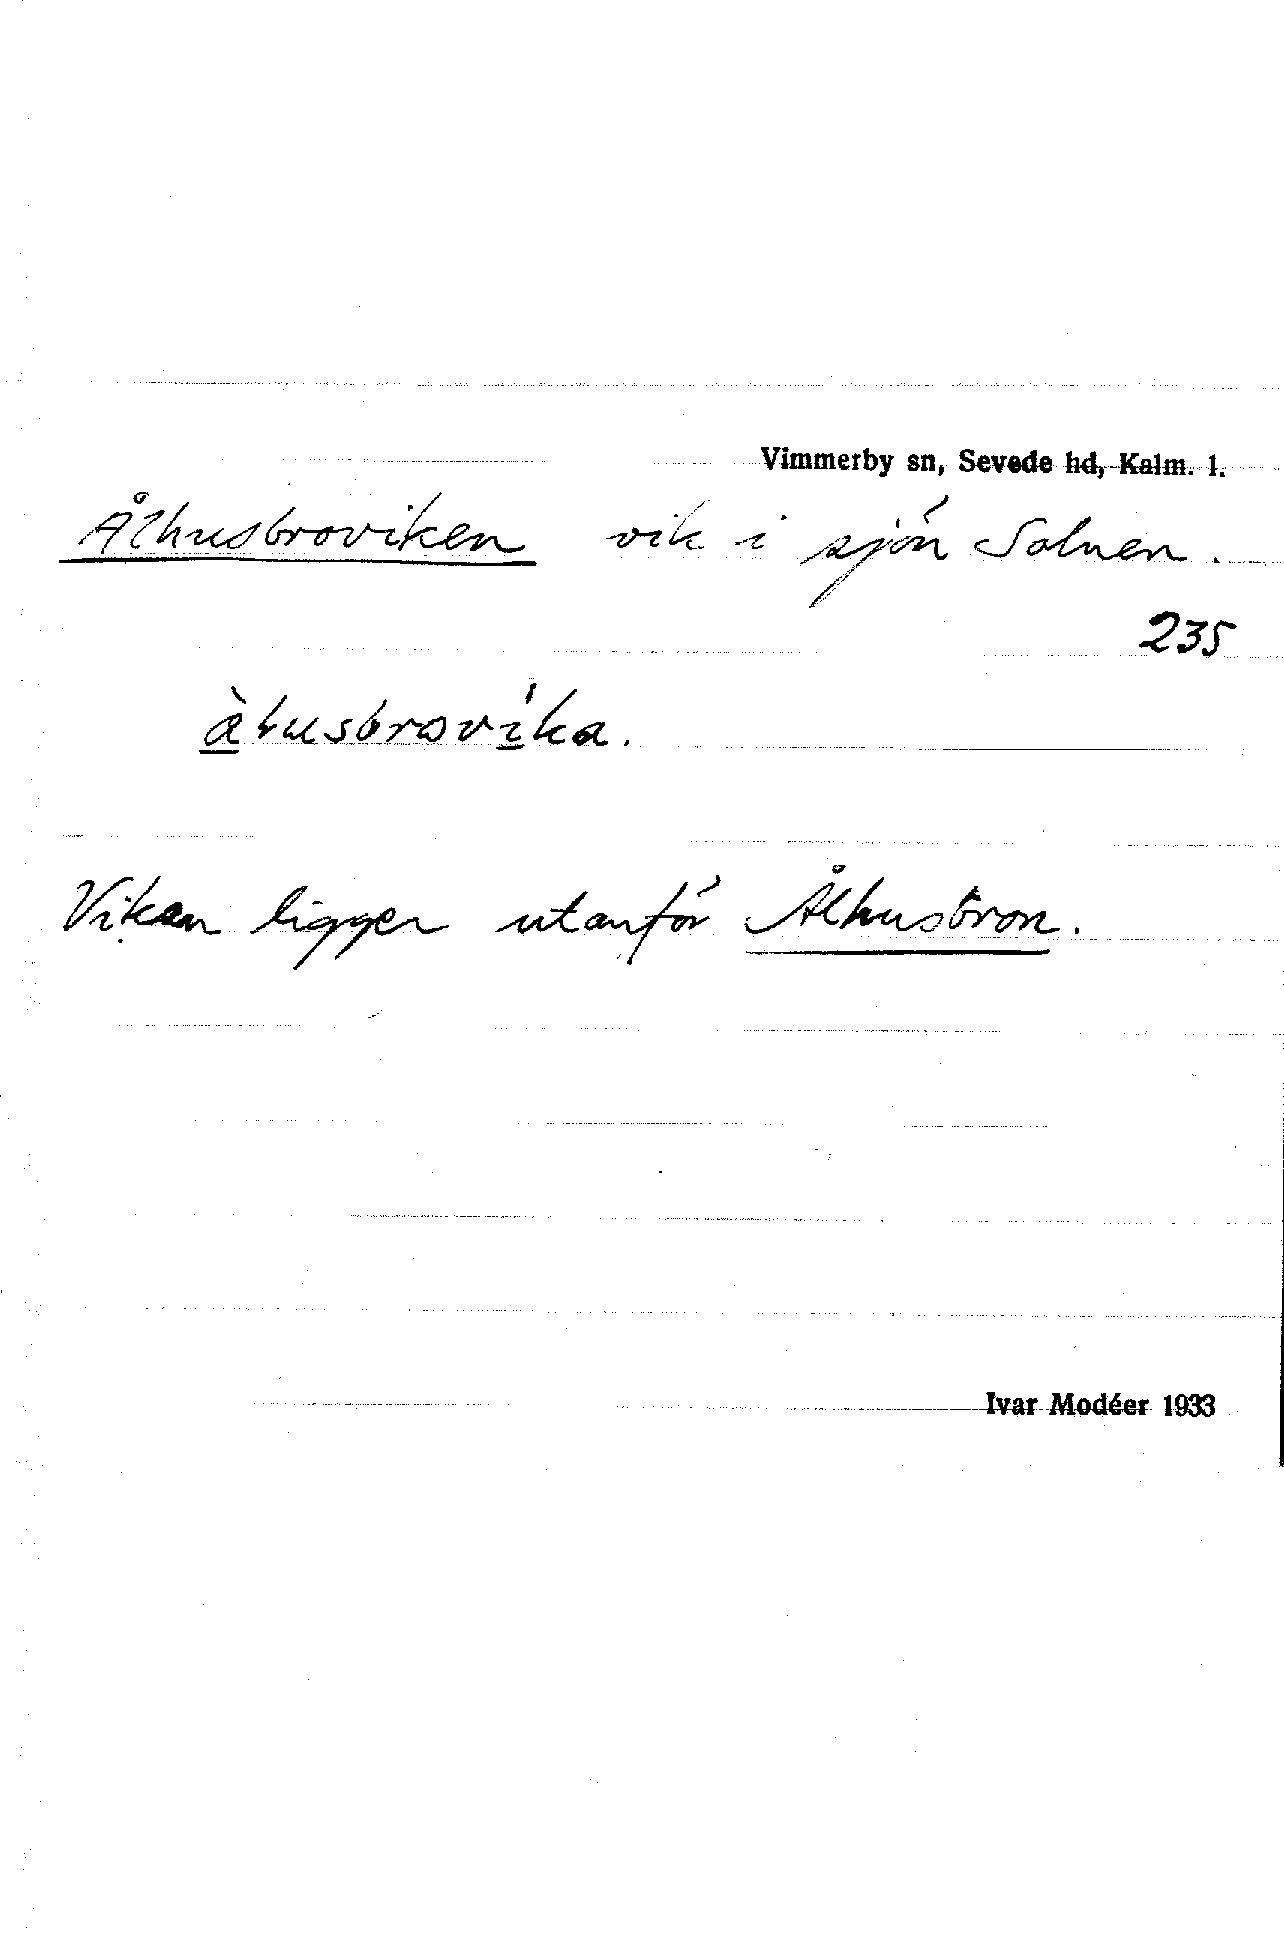 Vimmerby sn, Sevede hd, Kalm. l.
Ålhusbroviken vik i sjön Solnen.
235
Viken ligger utanför Ålhusbron.
Ivar Modéer 1933